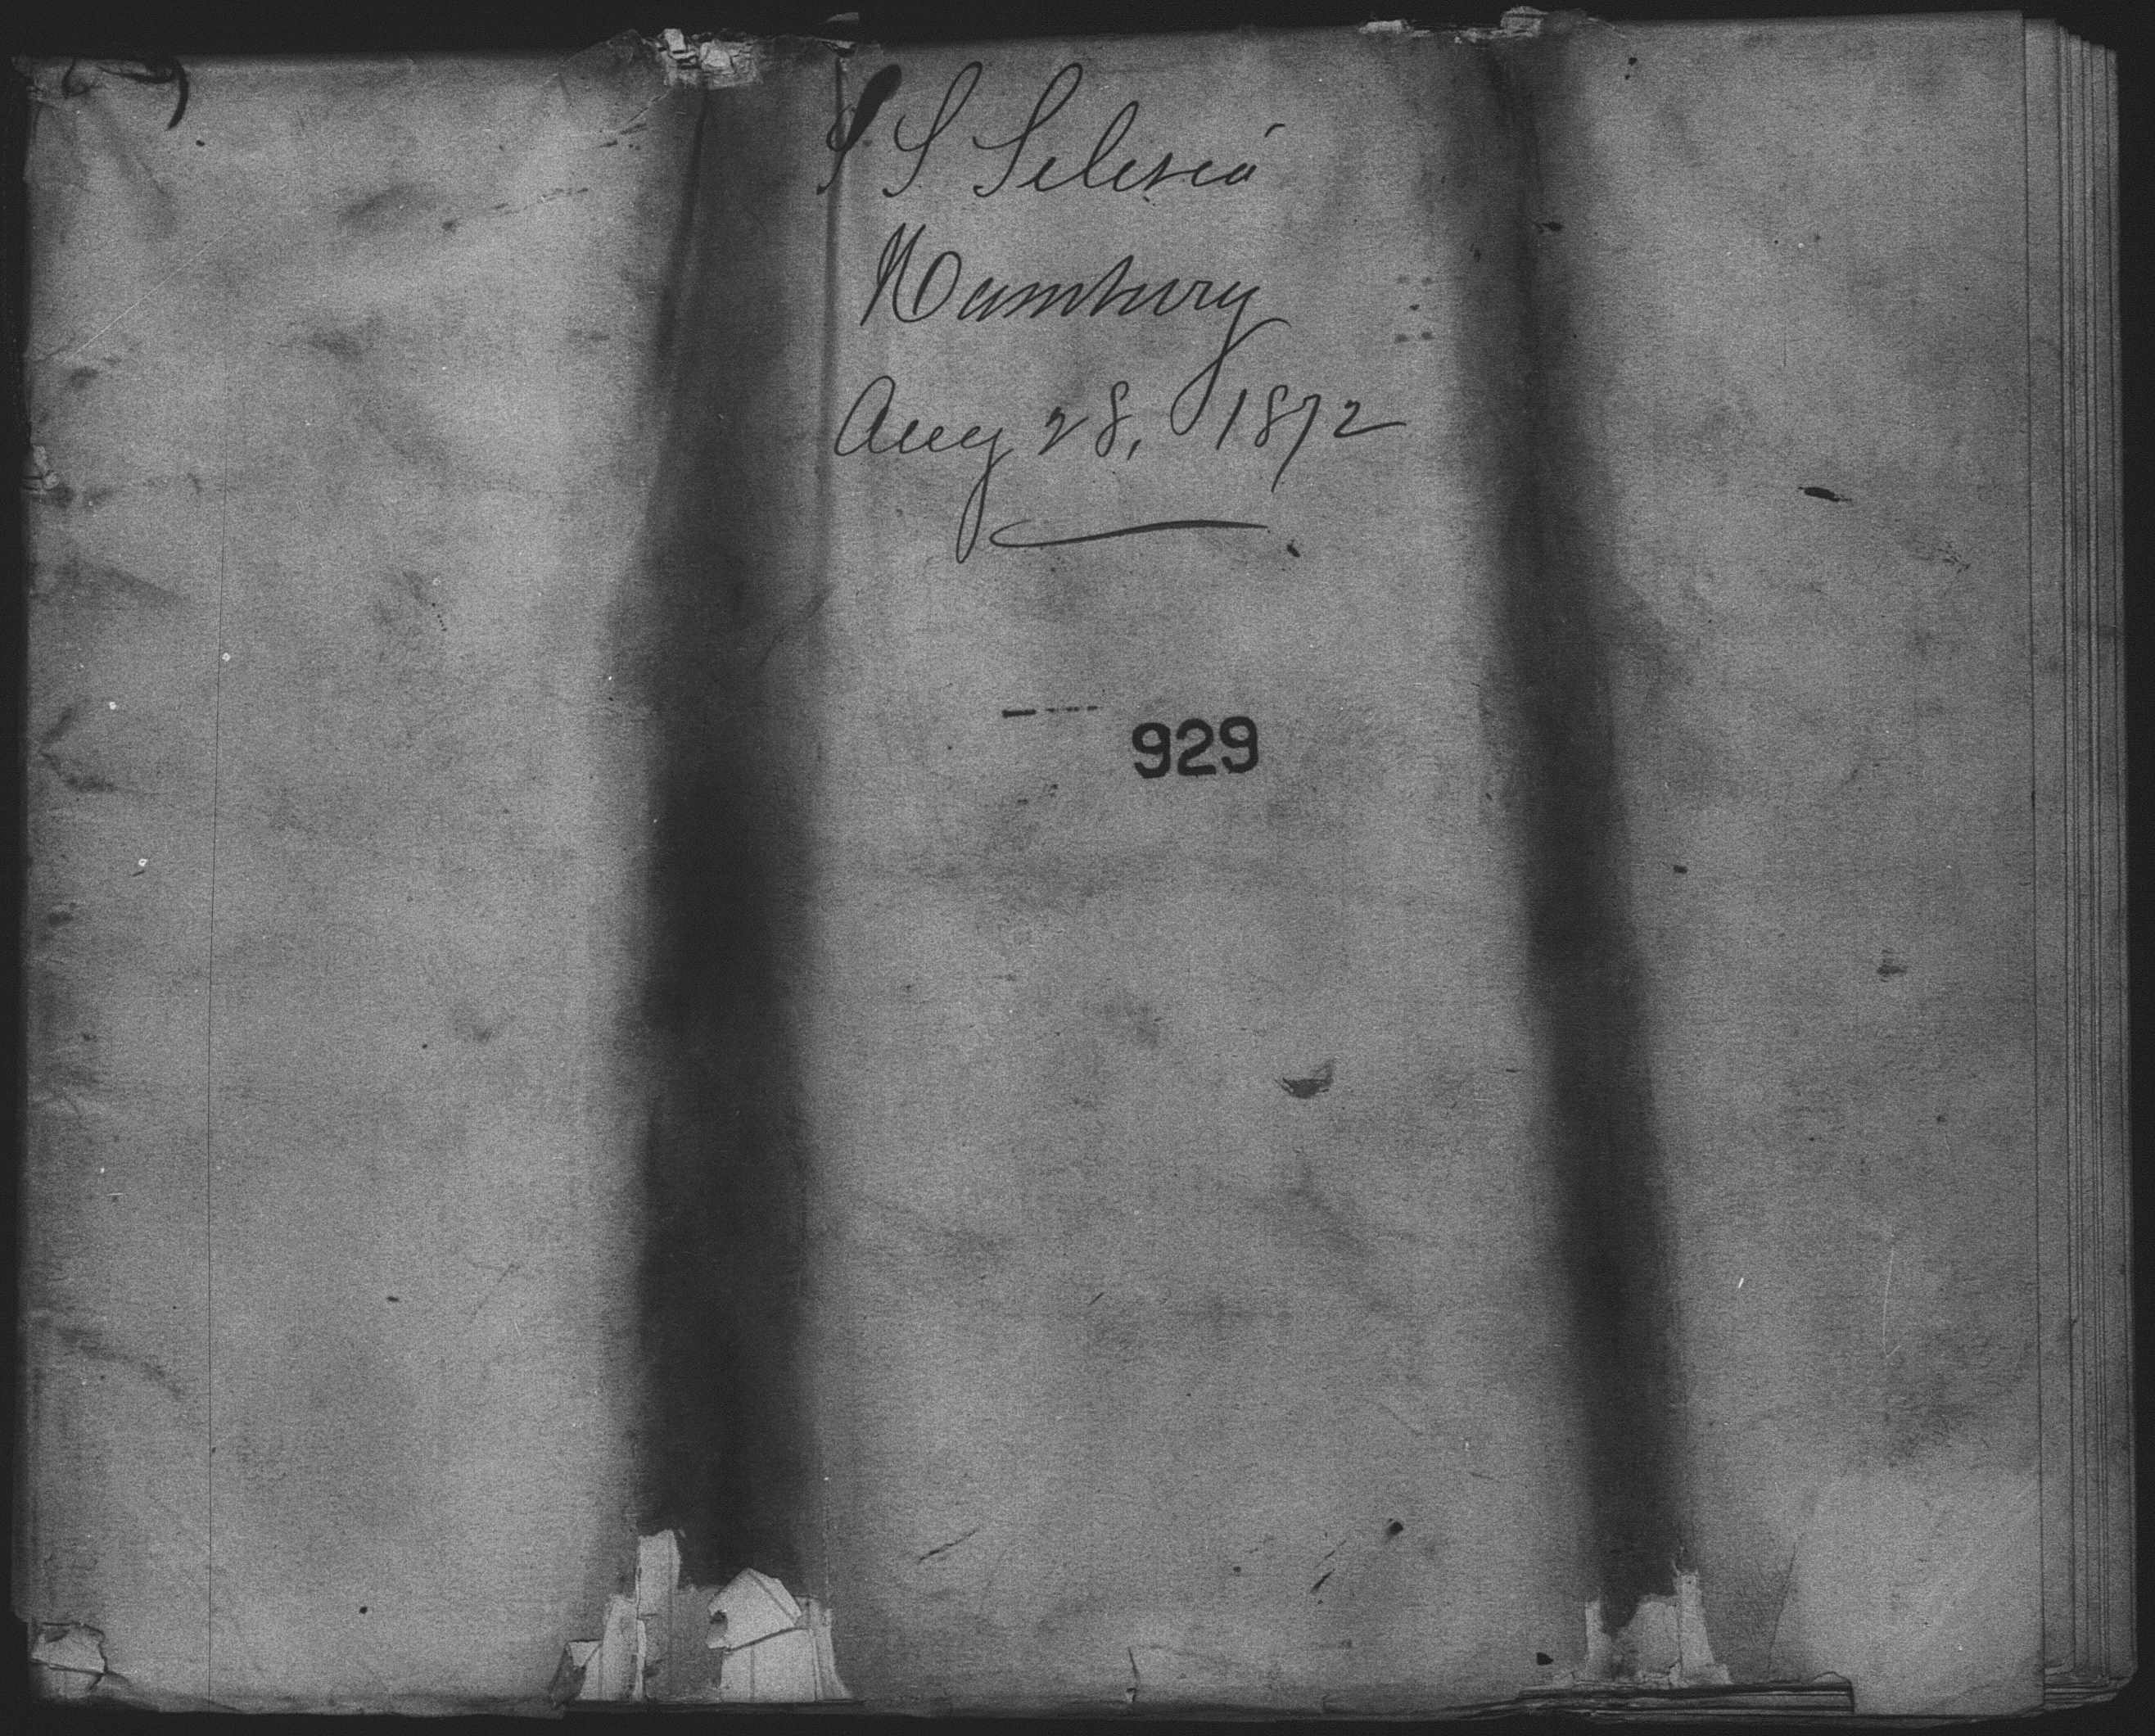 S S Silesia
Hamburg
Aug 28, 1872
929